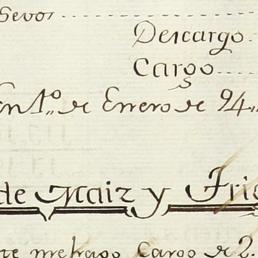 sevos
Descargo
Cargo
en 1.º de Enero de 94
de Maiz y Trig
me hago Cargo de 2.